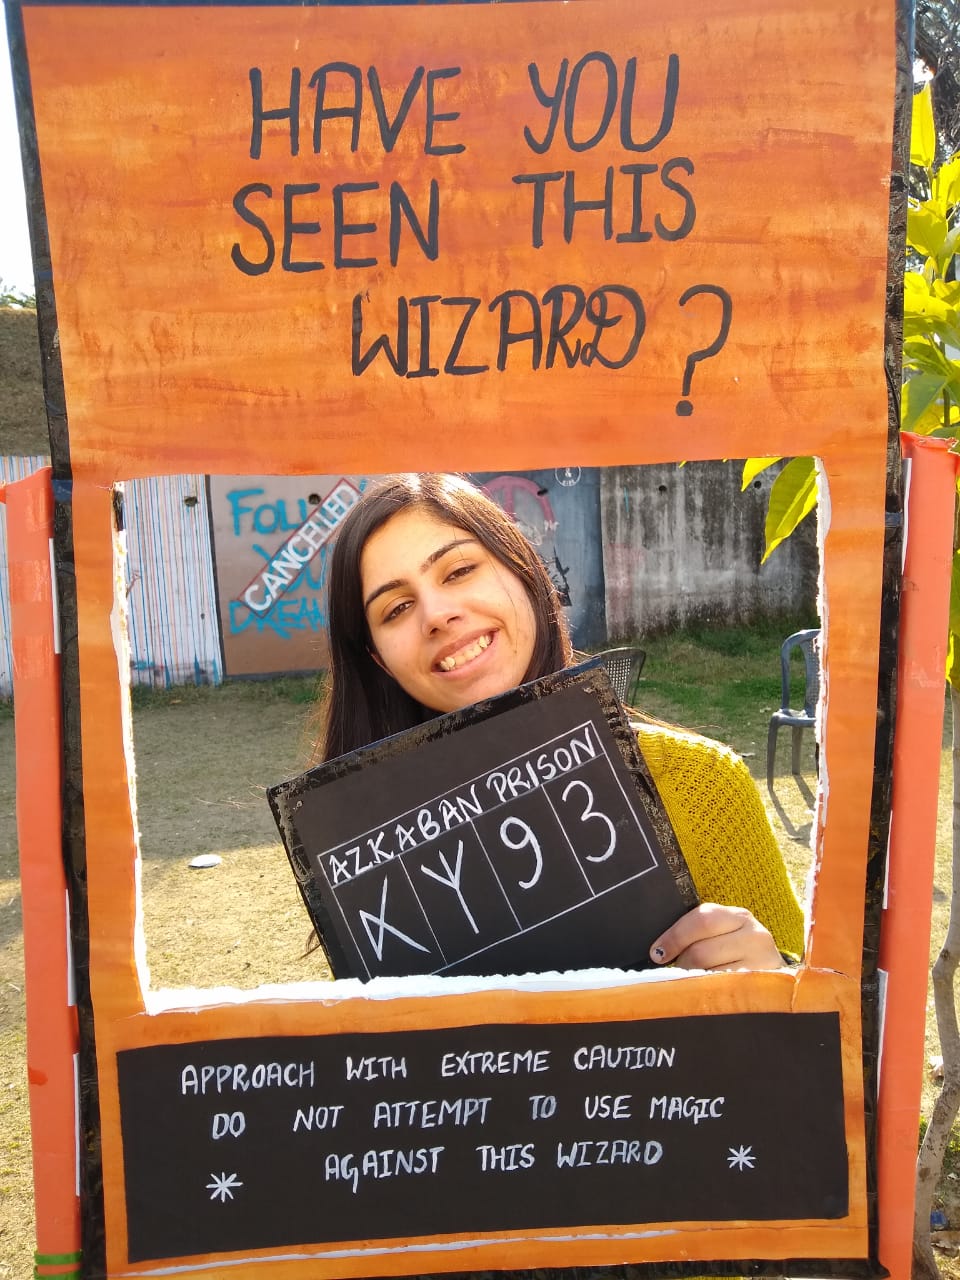 HAVE YOU
SEEN THIS
WIZARD?
CANCELLED
FOLLOW
DREAMS
AZKABAN PRISON
93
APPROACH WITH EXTREME CAUTION
DO NOT ATTEMPT TO USE MAGIC
AGAINST THIS WIZARD